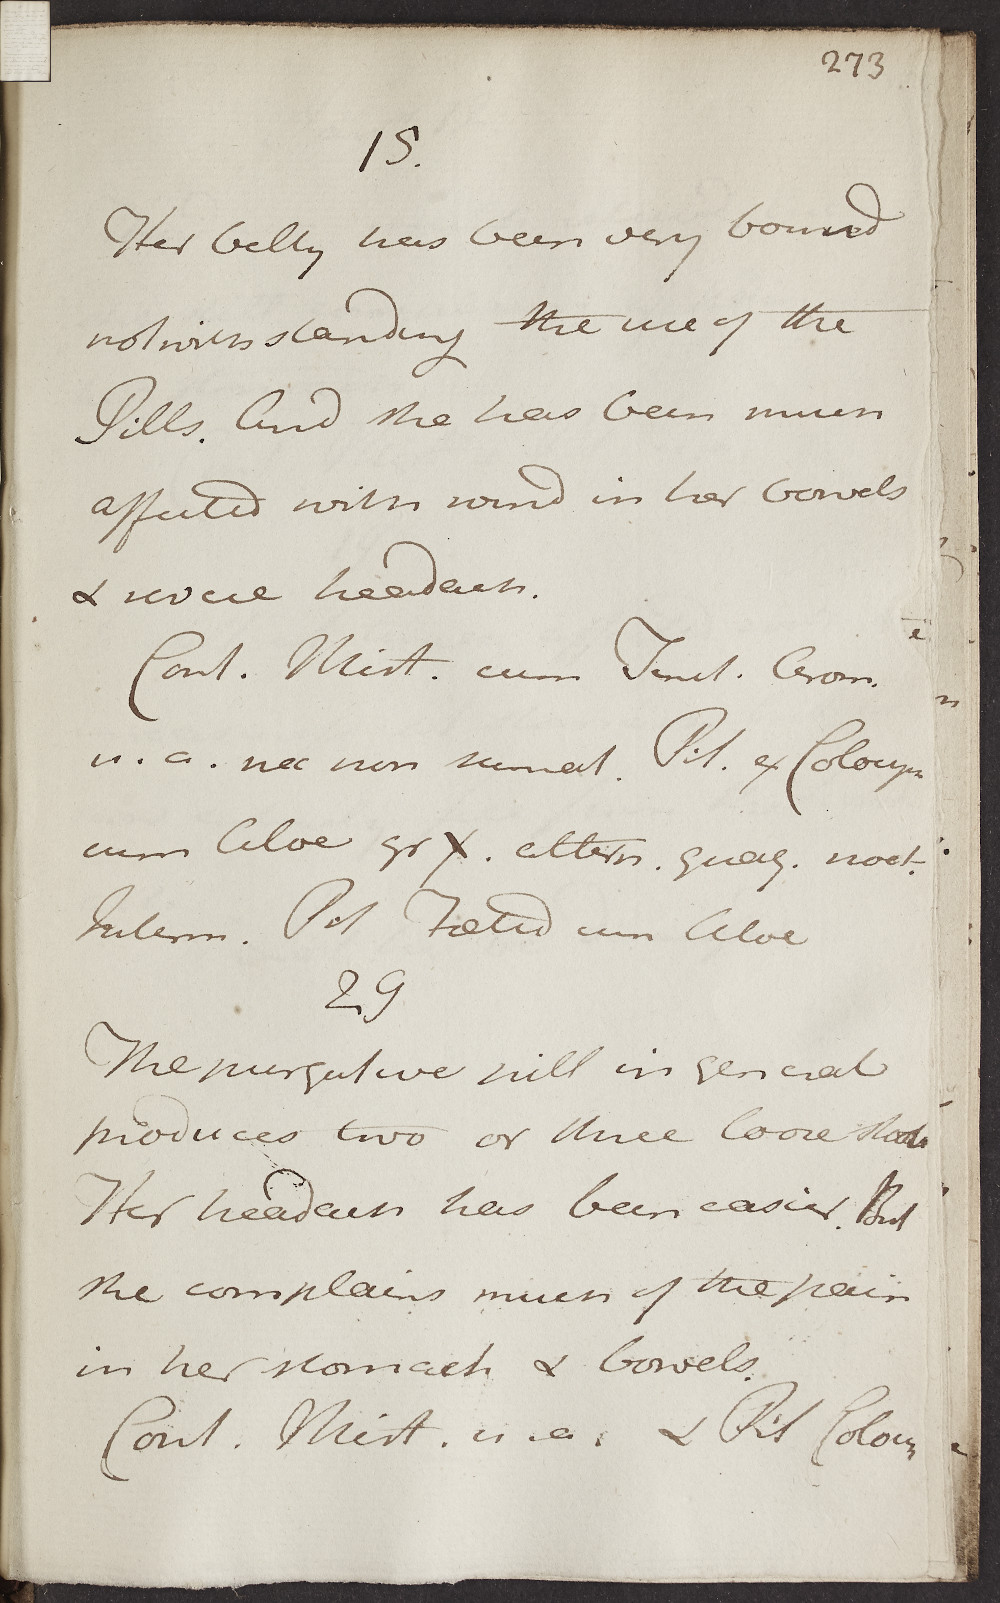 273
15.
Her belly has been very bound
notwithstanding the use of the
Pills. And she has been much
affected with wind in her bowels
& severe headach.
Cont. Mist. cum Tinct. Arom.
u. a. nec non sumat. Pil. ex Colocyn
cum Aloe gr X. altern. quaq. noct.
Interm. Pil Fœtid cum Aloe
29
The purgative pill in general
produces two or three loose stools
Her headach has been easier. But
she complains much of the pain
in her stomach & bowels.
Cont. Mist. u. a. & Pil Colocy